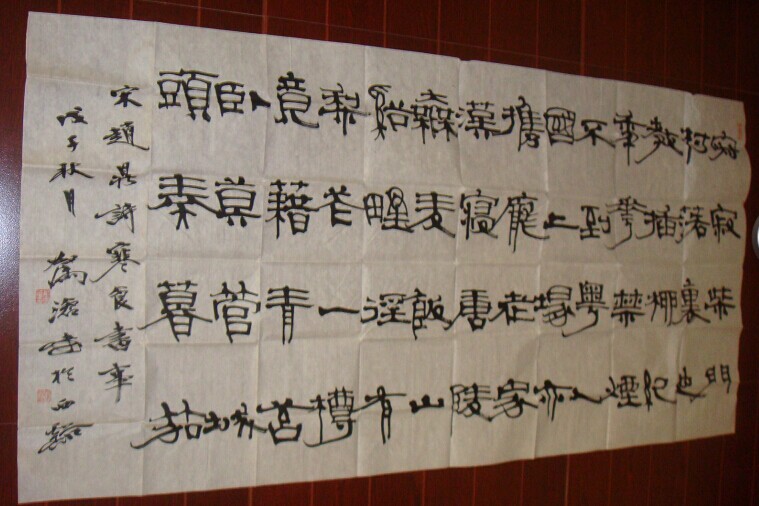 寂寂柴門
村落裏也
教插柳紀
年華禁煙
不到粤人
國上塚亦
攜龐老家
漢寢唐陵
無麦飯山
谿野徑有
梨花一樽
竟藉青苔
臥莫管城
頭奏暮笳
宋趙鼎詩寒食書事
戊子秋月 書於西谿